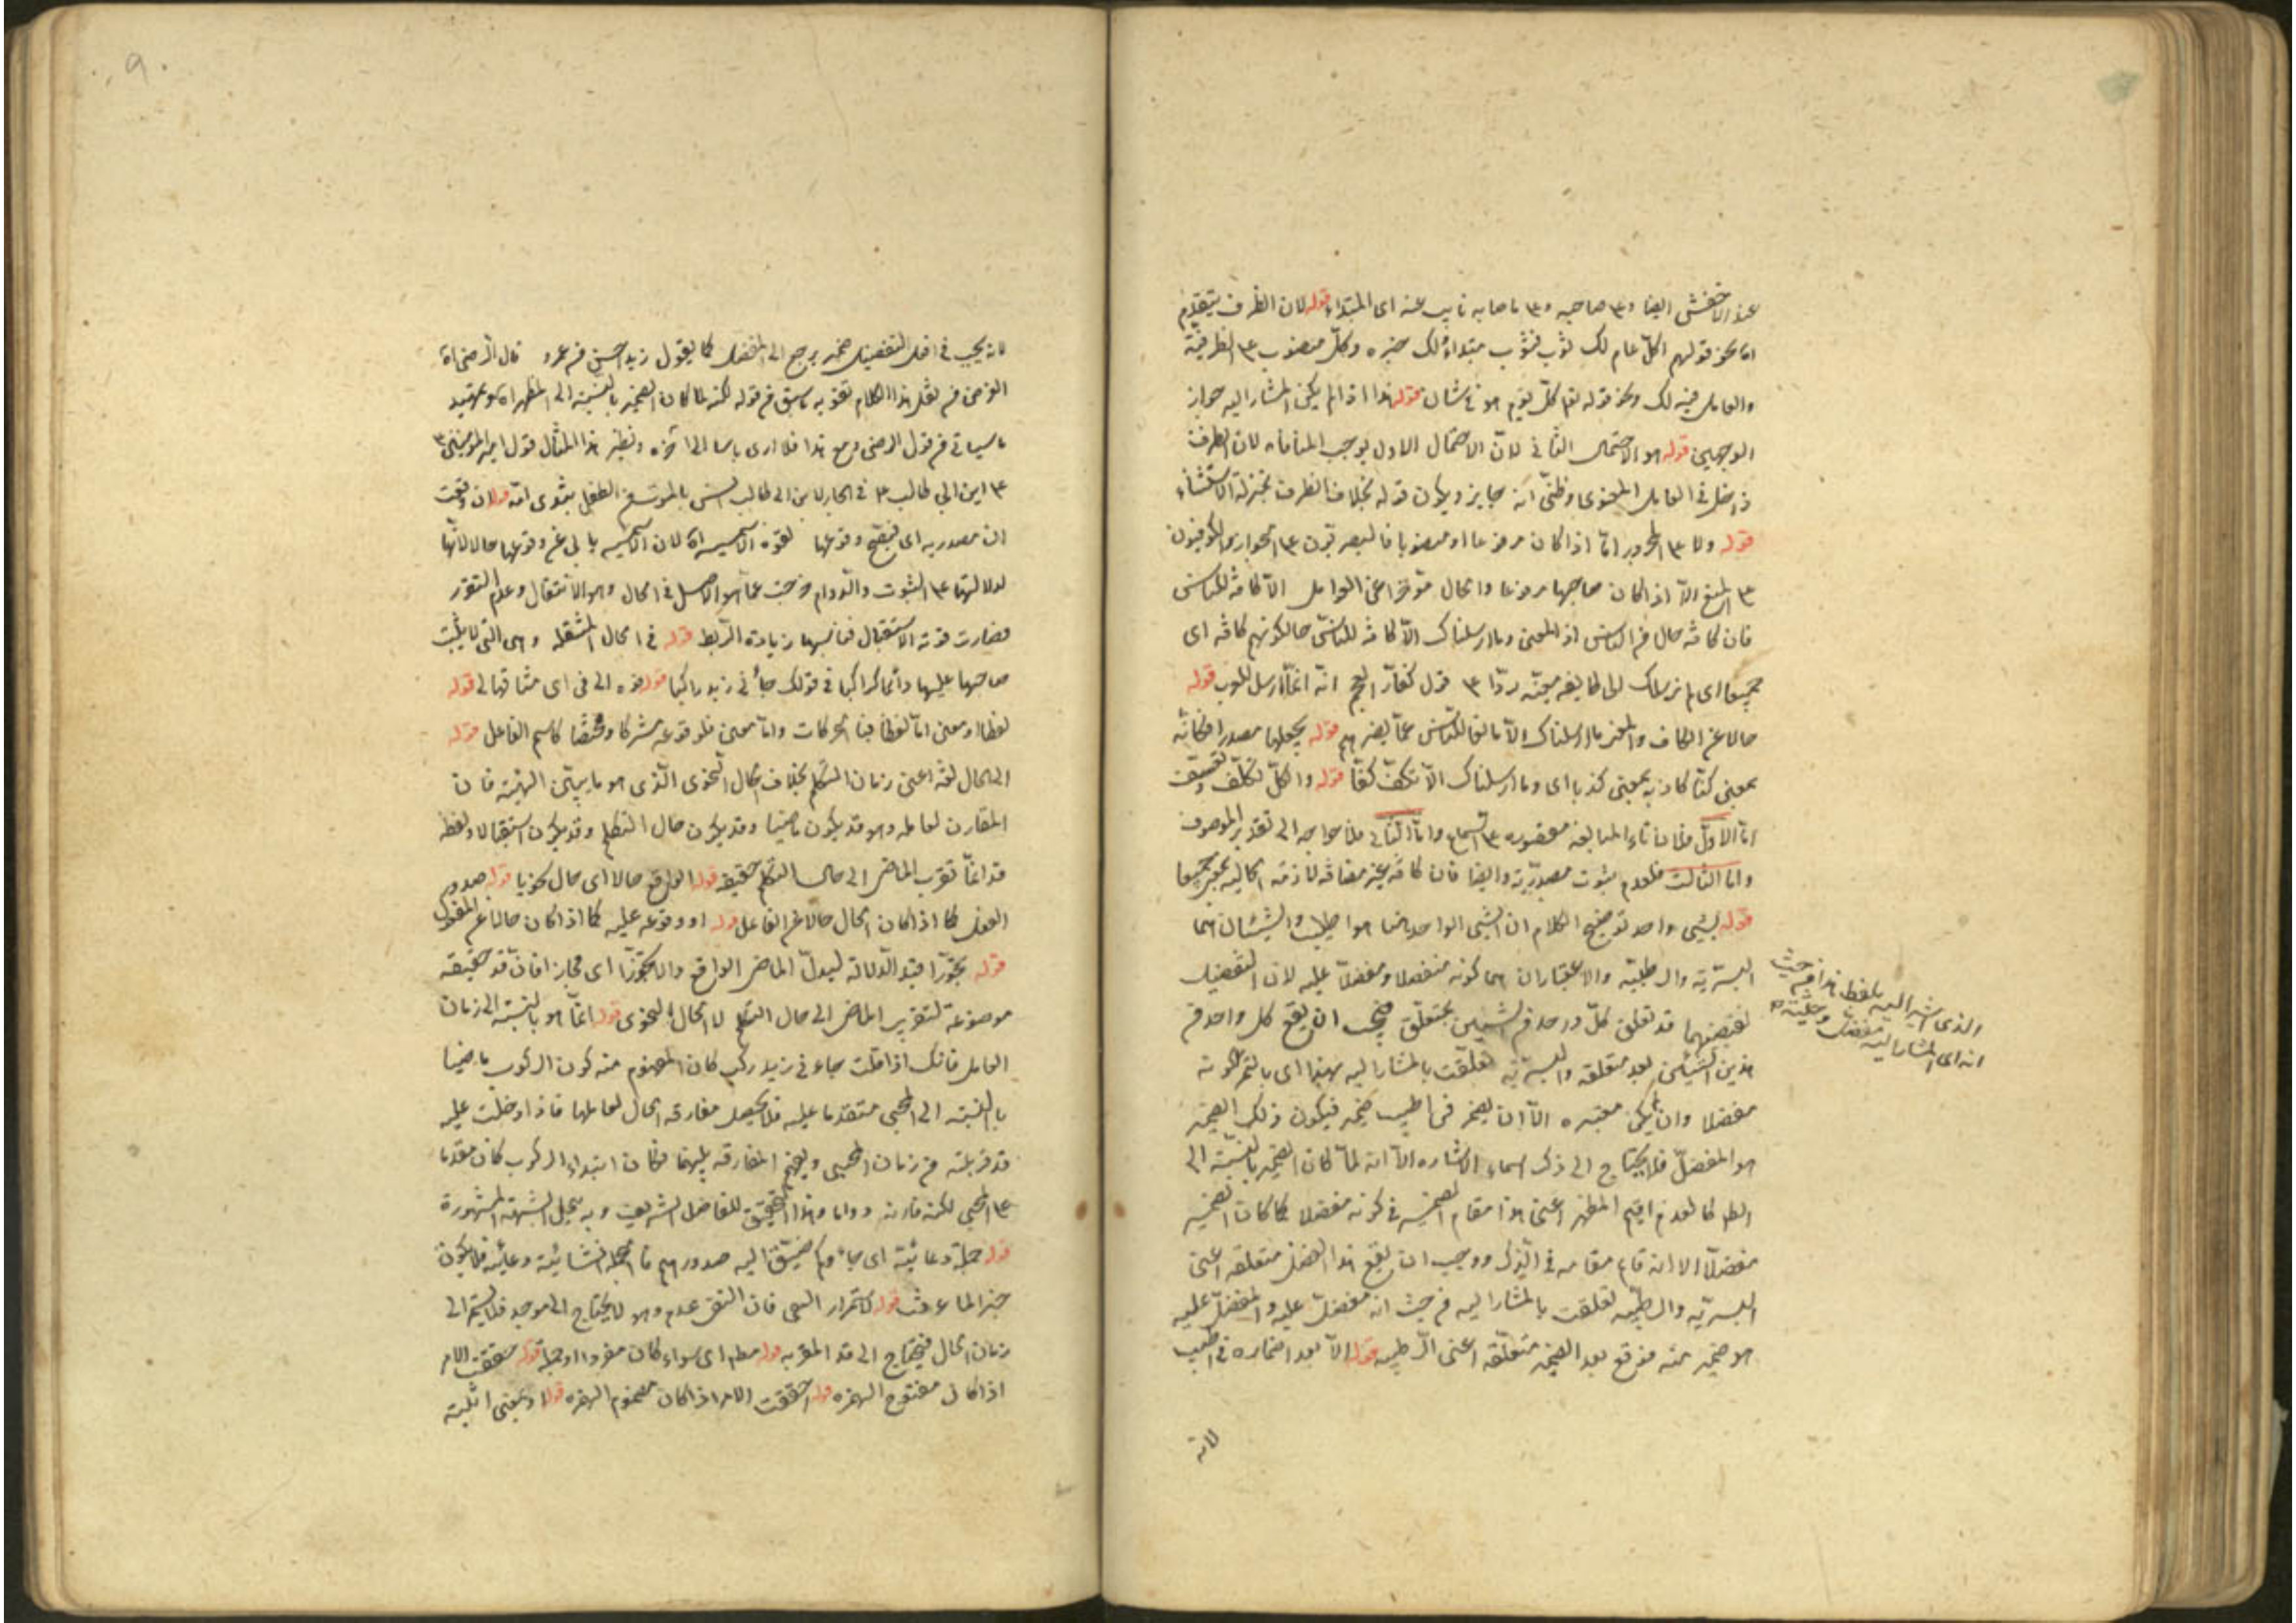 عند الاخفش ايضا و على صاحبه و على ما صاحبه نايب عنه اى المبتداء قوله لان الظرف يتقدم
اما نحو قولهم اكل عام لك ثوب فثوب مبتداء ولك خبره وكل منصوب على الظرفية
والعامل فيه لك ونحو قوله تع كل يوم هو فى شان قوله هذا اذا لم يكن المشار اليه جواز
الوجهين قوله هو الاحتمال الثانى لان الاحتمال الاول يوجب المنافاة لان الظرف
داخل فى العامل المعنوى وظنى انه جايز ويكون قوله بخلاف الظرف بمنزلة الاستثناء
قوله ولا على المجرور اما اذا كان مرفوعا او منصوبا فالبصريون على الجواز والكوفيون
على المنع الا اذا كان صاحبها مرفوعا والحال متوخرا عن العوامل الا كافة للناس
فان كافة حال من الناس اذ المعنى وما ارسلناك الا كافة للناس حالكونهم كافة اى
جميعا اى لم نرسلك الى طايفة معينة ردا على قول كفار العجم انه انما ارسل للعرب قوله
حالا عن الكاف والمعنى ما ارسلناك الا مانعا للناس عما يضرهم قوله بجعلها مصدرا فكانه
بمعنى كفا كاذبة بمعنى كذبا اى وما ارسلناك الا تكف كفا قوله والكل تكلف وتعسف
اما الاول فلان تاء المبالغة مقصورة على السماع واما الثانى فلاحتياجه الى تقدير الموصوف
واما الثالث فلعدم ثبوت مصدرية وايضا فان كافة غير مضافة لازمة الحالية بمعنى جميعا
قوله بشيئى واحد توضيح الكلام ان الشيئى الواحد هنا هو اطيب والشيئان هما
البسرية والرطبية والاعتباران هما كونه مفضلا ومفضلا عليه لان التفضيل
يقتضيهما قد تعلق كل واحد من الشيئين بمتعلق فيجب ان يقع كل واحد من
هذين الشيئين بعد متعلقه والبسرية تعلقت بالمشار اليه بهذا اى بالتمر لكونه
مفضلا وان لم يكن معتبره الا ان يضمر فى اطيب ضمير فيكون ذلك الضمير
هو المفضل فلا يحتاج الى ذكر اسماء الاشاره الا انه لما كان الضمير بالنسبة الى
الظاهر كالعدم اقيم المظهر اعنى هذا مقام الضمير فى كونه مفضلا كما كان الضمير
مفضلا الا انه قام مقامه فى الذكر ووجب ان يقع هذا الفعل متعلقه اعنى
البسرية والرطبية تعلقت بالمشار اليه من حيث انه مفضل عليه والمفضل عليه
هو ضمير منه فوقع بعد الضمير متعلقه اعنى الرطبية قوله الا بعد اضماره فى اطيب
لانه
والذى اشير اليه بلفظ هذا من حيث
انه اى المشار اليه مفضل وحيثية
٩
لانه يجب فى افعل التفضيل ضمير يرجع الى المفضل كما يقول زيد احسن من عمرو قال الرضى اه
الغرض من نقل هذا الكلام تقويه ما سبق من قوله لكنه لما كان الضمير بالنسبة الى المظهر اه وتمهيد
ما سياتى من قول الرضى ومع هذا فلا ارى باسا الى اخره ونظير هذا المثال قول امير المؤمنين ع
على ابن ابى طالب ع فى الجار لابن ابى طالب انس بالموت من الطفل بثدى امه قوله لان وقعت
ان مصدرية اى فيصح وقوعها لقوة الاسمية اه لان الاسمية يابى عن وقوعها حالا لانها
لدلالتها على الثبوت والدوام خرجت عما هو الاصل فى الحال وهو الانتقال وعدم التقرر
فصارت قوية الاستقبال فناسبها زيادة الربط قوله فى الحال المنتقلة وهى التى لا يثبت
صاحبها عليها دائما كراكبا فى قولك جائنى زيد راكبا قوله
لفظا او معنى اما لفظا فبا الحركات واما معنى فلوقوعه مشتركا ومختصا كاسم الفاعل قوله
الى الحال لغة اعنى زمان التكلم بخلاف الحال النحوى الذى هو ما يبين الهيئة فان
المقارن لعامله وهو قد يكون ماضيا وقد يكون حال التكلم وقد يكون استقبالا ولفظة
قد انما تقرب الماضى الى حال التكلم حقيقة قوله الواقع حالا اى حال نحويا قوله صدور
الفعل كما اذا كان الحال حالا عن الفاعل قوله او وقوعه عليه كما اذا كان حالا عن المفعول
قوله تجوزا قيد الدلالة ليدل الماضى الواقع حالا تجوزا اى مجازا فان قد حقيقة
موضوعة لتقريب الماضى الى حال التكلم لا الحال النحوى قوله انما هو بالنسبة الى زمان
العامل فانك اذا قلت جاءنى زيد ركب كان المفهوم منه كون الركوب ماضيا
بالنسبة الى المجيئ متقدما عليه فلا يحصل مقارنة الحال لعاملها فاذا دخلت عليه
قد قربته من زمان المجيئ ويفهم المقارنة بينهما فكان ابتداء الركوب كان مقدما
على المجيئ لكنه قارنه دواما وهذا التحقيق للفاضل الشريف وبه ينحل الشبهة المشهورة
قوله جملة دعائية اى جاءوكم ضيق الله صدورهم فالجملة انشائية دعائية فلا يكون
خبر الماعرفت قوله لاستمرار النفى فان النفى عدم وهو لا يحتاج الى موجد فلا يستمر الى
زمان الحال فيحتاج الى قد المقربه قوله مطلقا اى سواء كان مفردا او جملة قوله حققت الامر
اذا كان مفتوح الهمزة قوله احققت الامر اذا كان مضموم الهمزة قوله او بمعنى اثبته